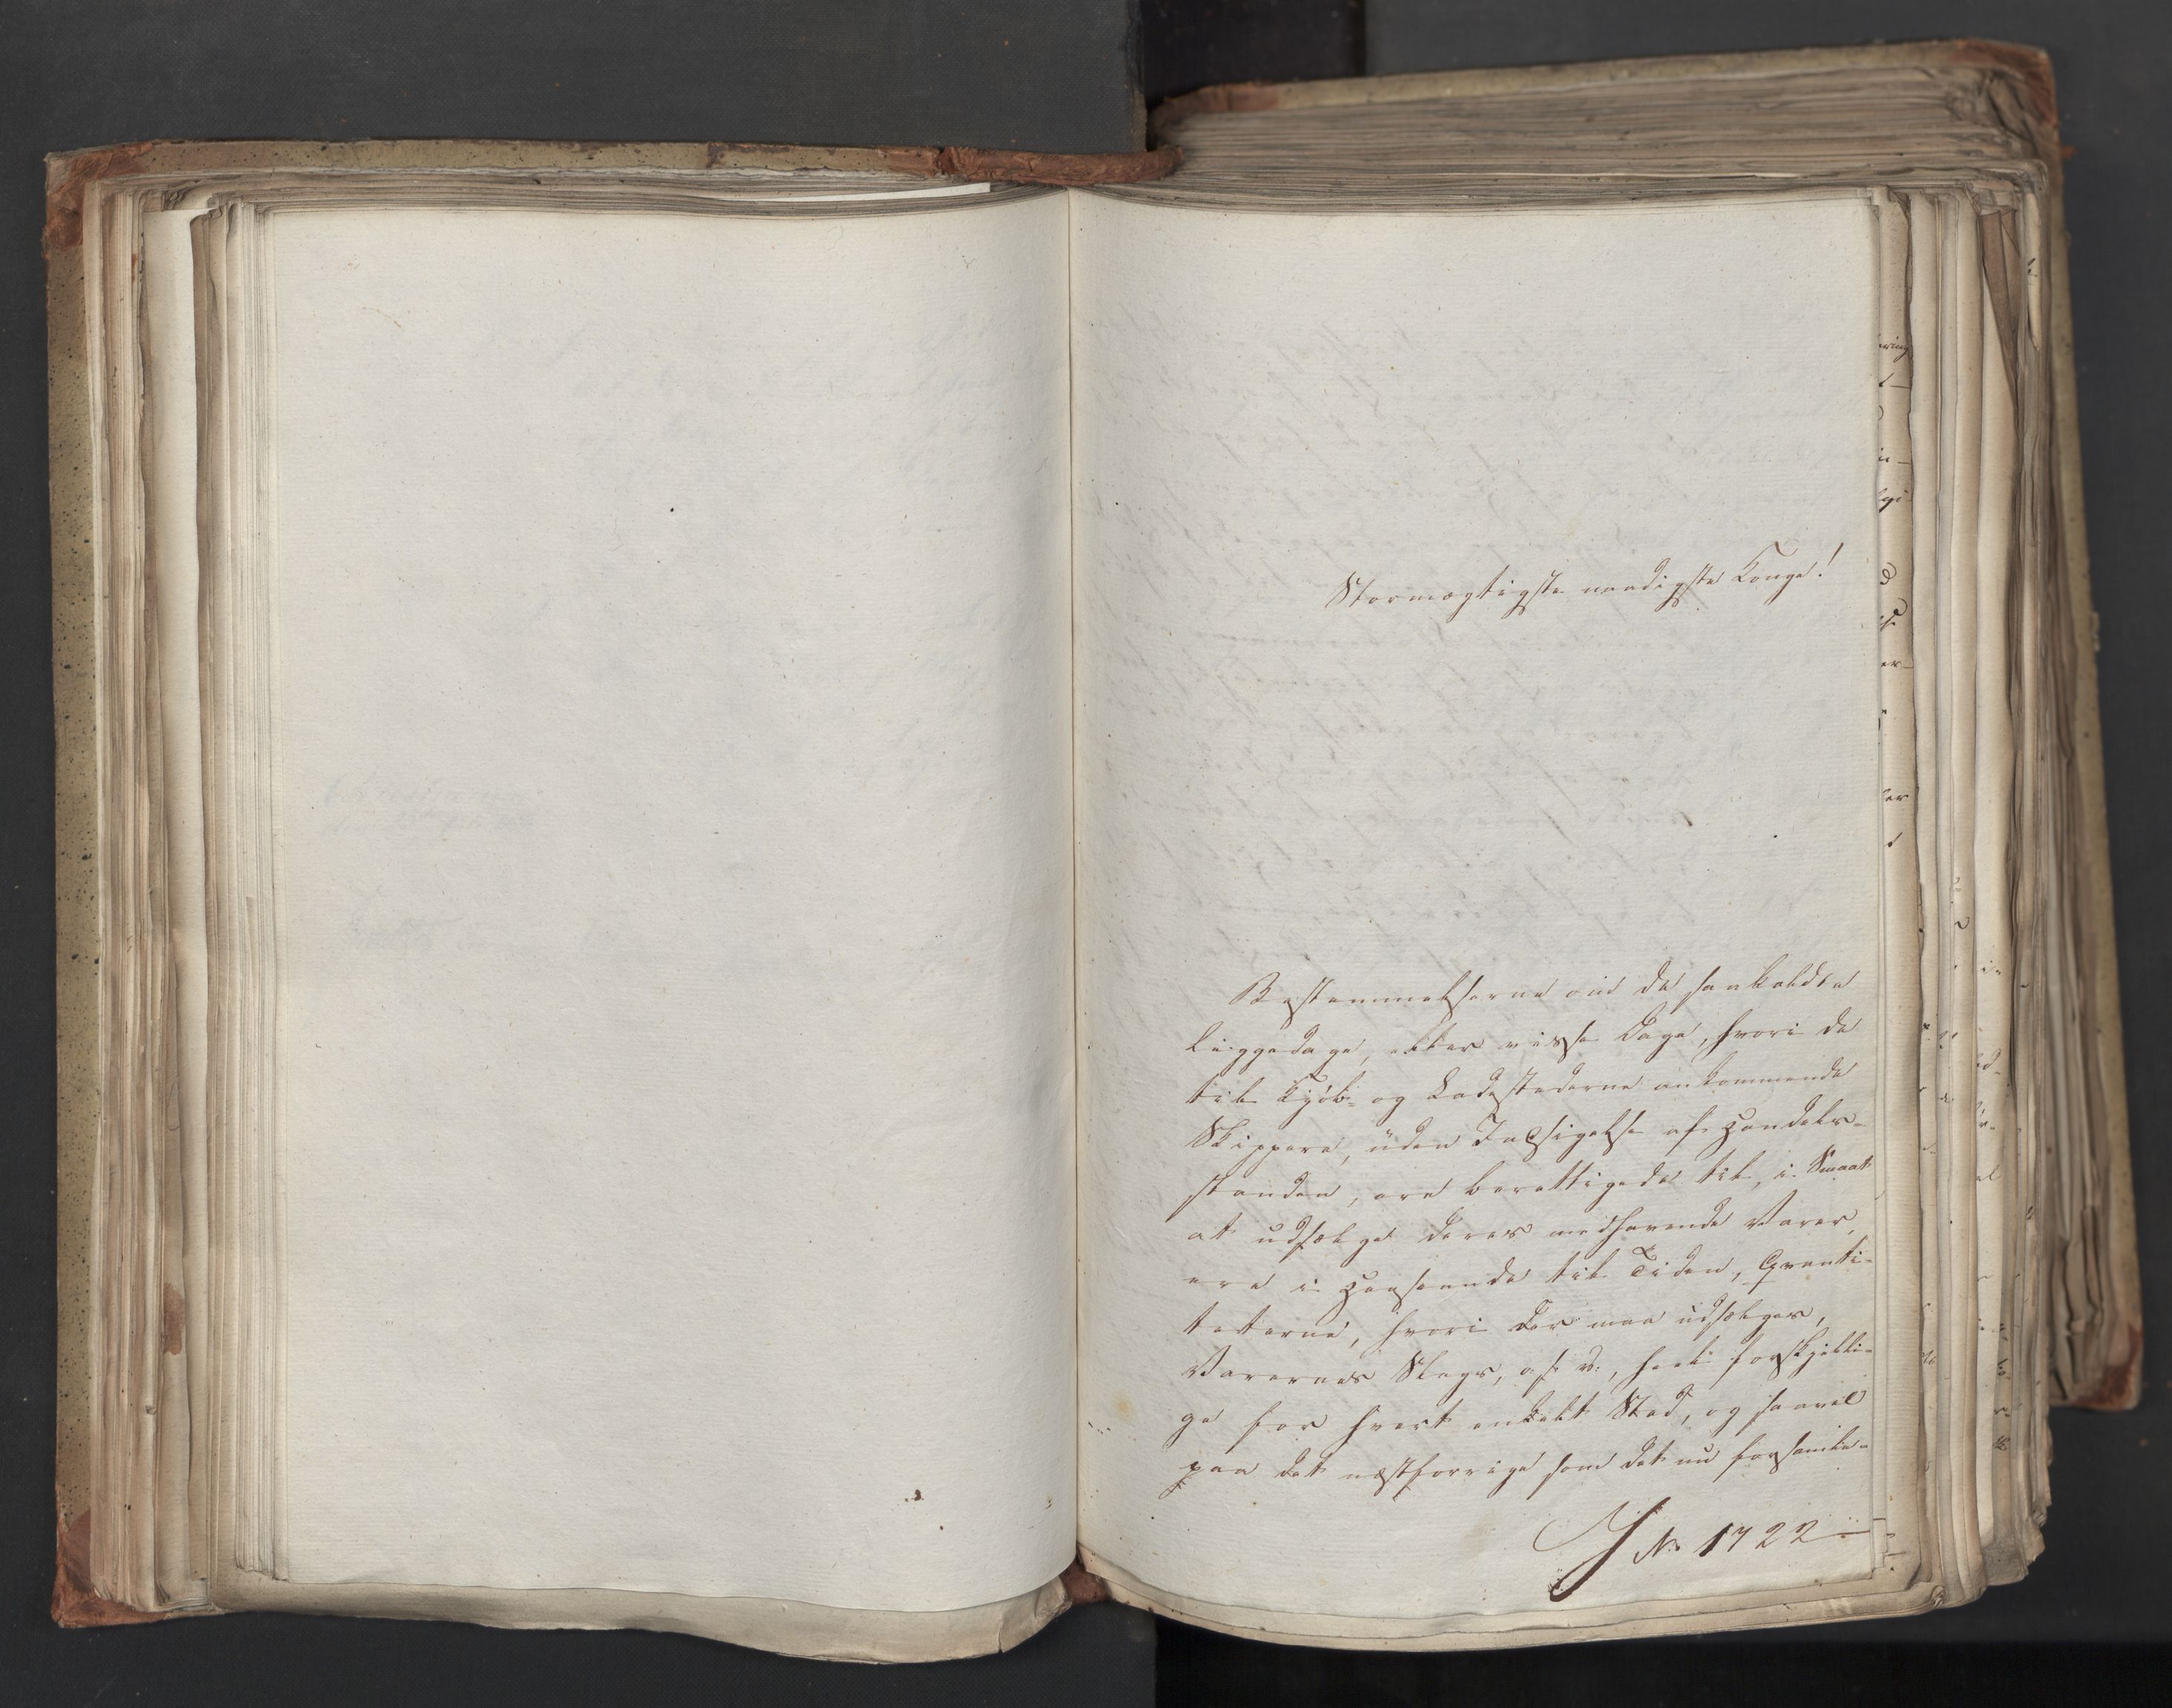 Stormægtigste naadigste Konge!
Bestemmelserne om de saakaldte
Liggedage, eller visse Dage, hvori de
til Kjøb- og Ladestæderne ankommende
Skippere, uden Indsigelse af Handels-
standen, ere berettigede til, i Smaat
at udsælge deres medhavende Varer,
ere i Henseende til Tiden, Qvanti-
teterne, hvori der maa udsælges,
Varernes Slags, o. s. v., heel forskjelli-
ge for hvert enkelt Sted, og saavel
paa det næstforrige som det nu forsamle-
J No 1722